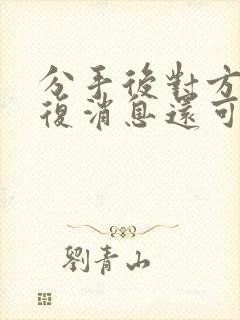 分手後對方
復消息還可
劉青山